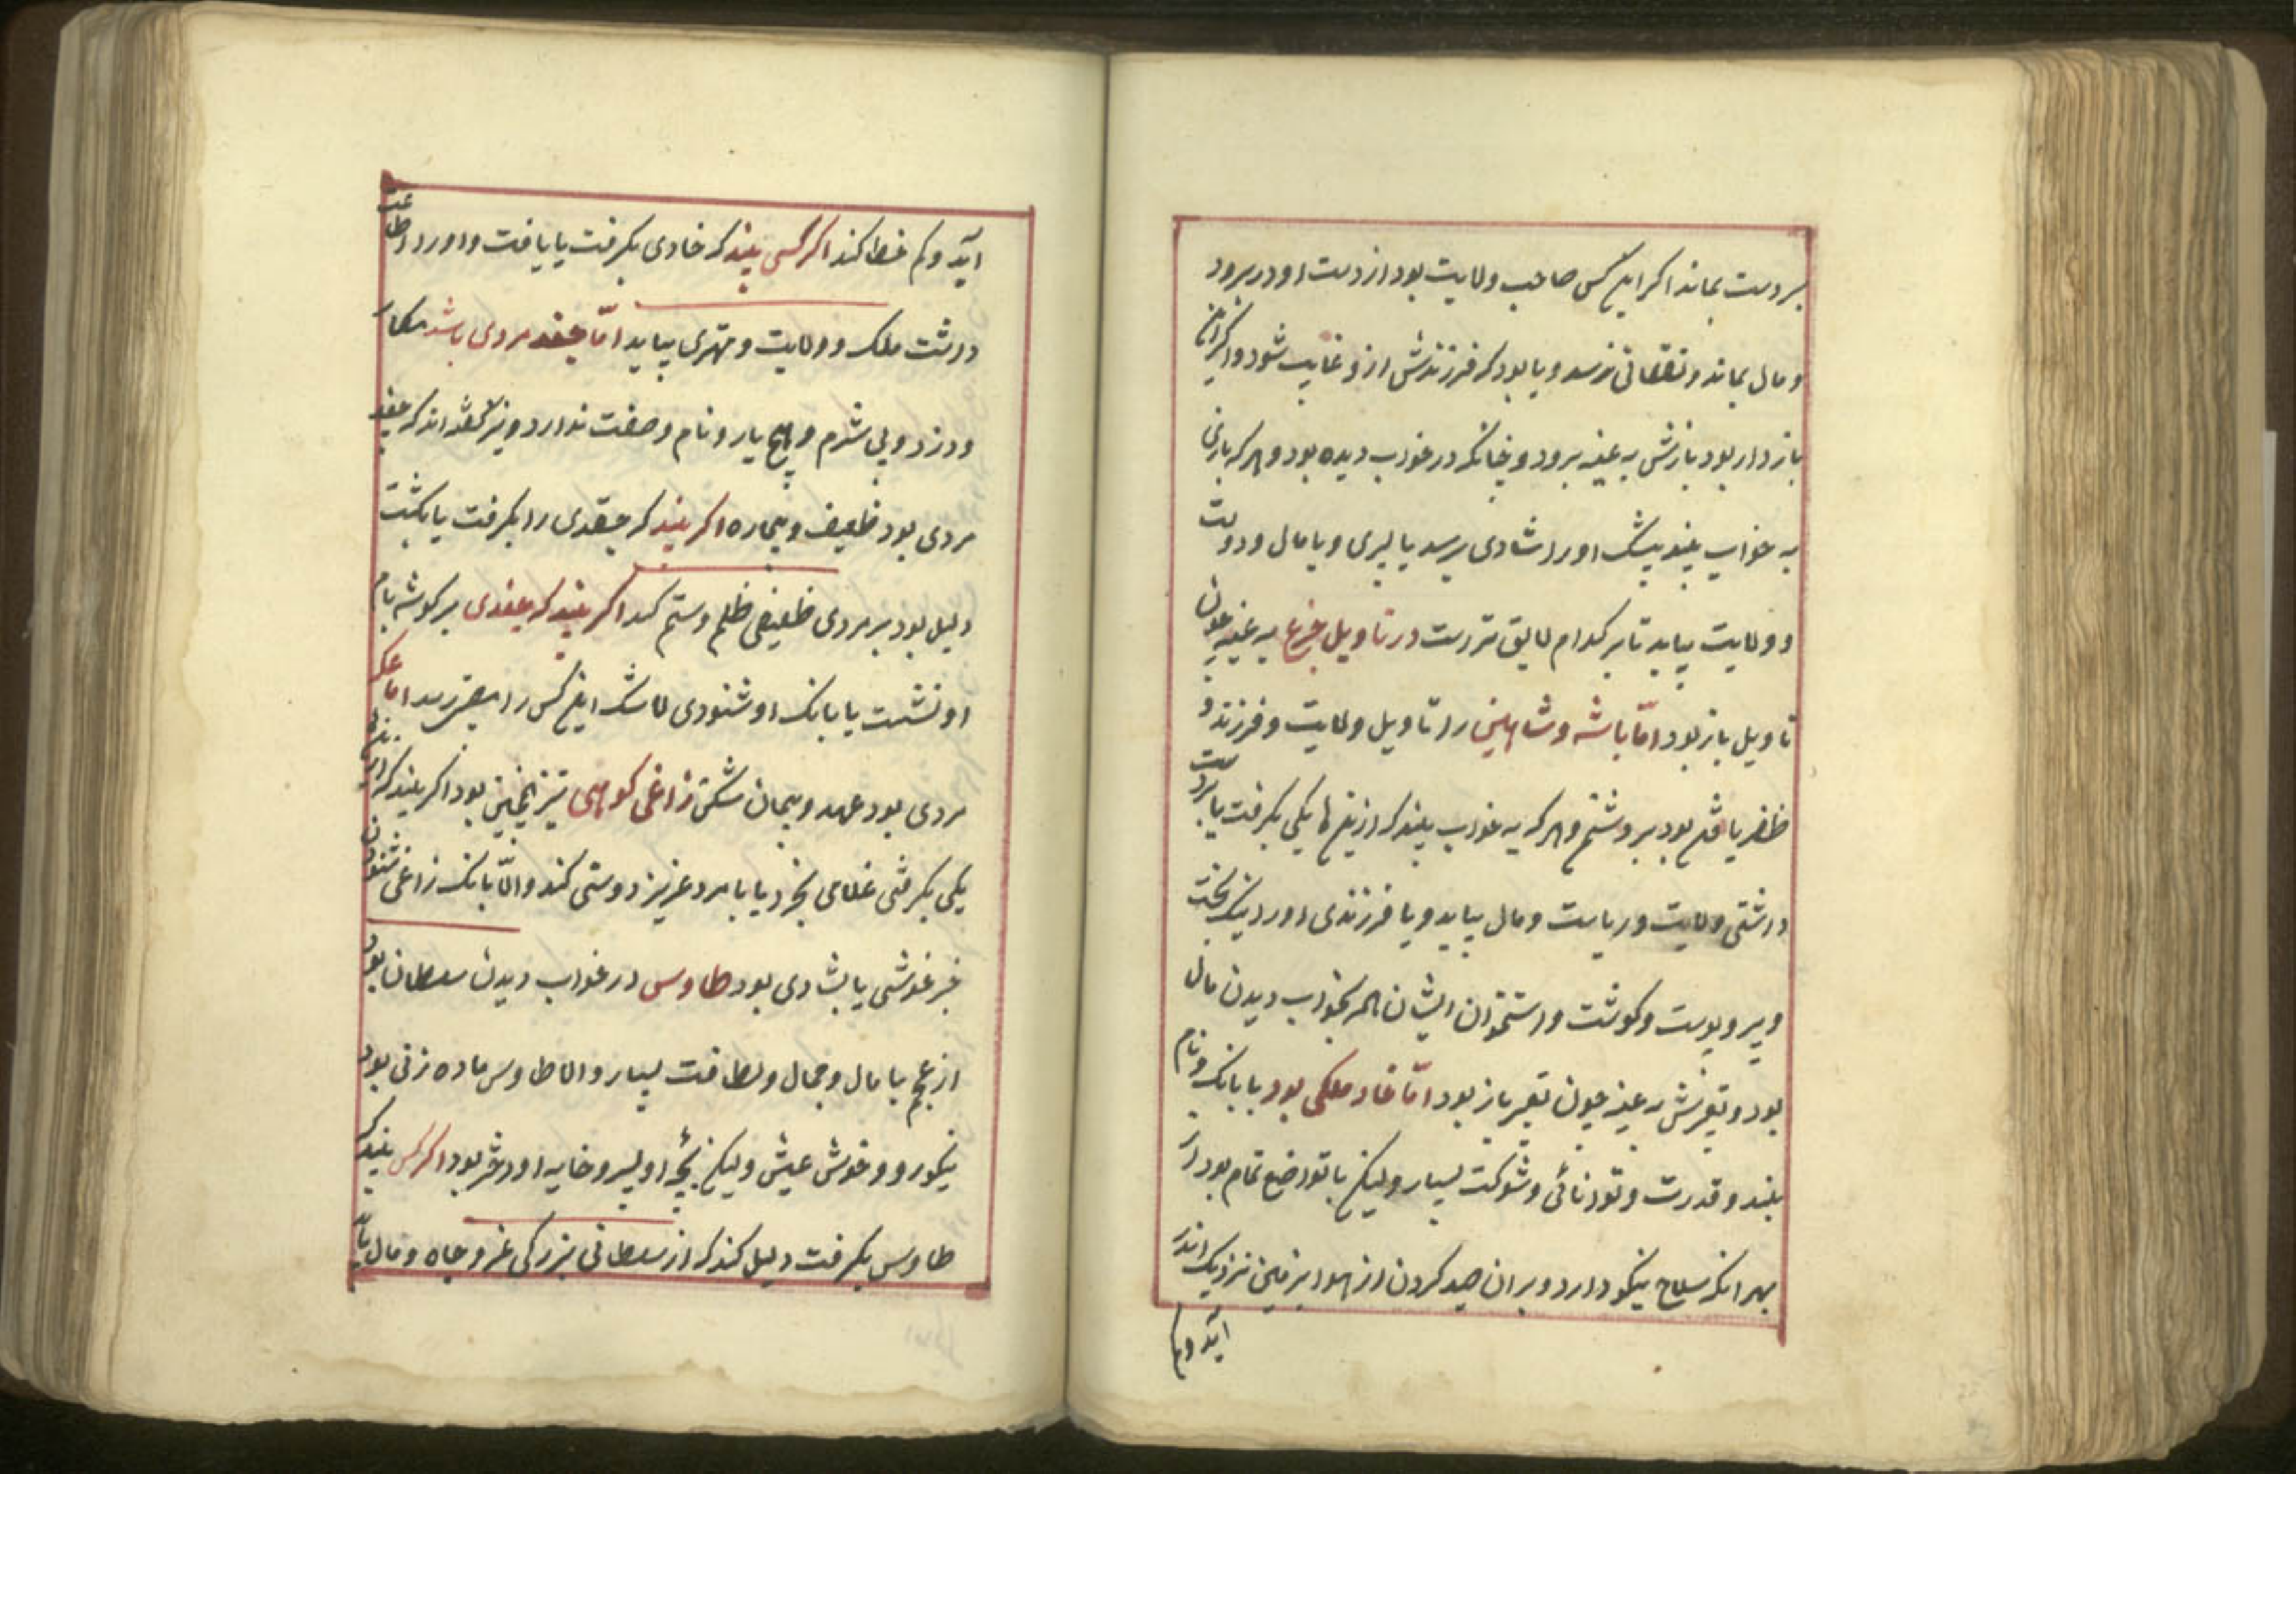 بر دست بماند اکر این کس صاحب ولایت بود از دست او در برود
و مال بماند و نقصانی نرسد و یا بود که فرزندش ازو غایب شود و اکر این
باز دار بود بازش به عینه برود و چنانکه در خواب دیده بود و هر که بازی
به خواب بیند بیشک او را شادی برسد یا پسری و یا مال و دولت
و ولایت بیابد تا بر کدام لایق ترست در تاویل چرغ به عینه چون
تاویل باز بود امّا باشه و شاهین را تاویل ولایت و فرزند و
ظفر یافتن بود بر دشمن و هر که به خواب بیند که ازین ها یکی بکرفت یا بر دست
داشتی ولایت و ریاست و مال بیابد و یا فرزندی او را نیکبخت
و پر و پوست و کوشت و استخوان ایشان همه بخواب دیدن مال
بود و تعبیرش به عینه چون تعبیر باز بود امّا خاد ملکی بود با بانک و نام
بلند و قدرت و توانائی و شوکت بسیار ولیکن با تواضع تمام بود از
بهر انکه سلاح نیکو دارد و بر ان صید کردن از هوا بزمین نزدیک اندر
آید و کم
آید و کم خطا کند اکر کسی بیند که خادی بکرفت یا یافت و او را اطاعت
داشت ملک و ولایت و مهتری بیابد امّا جغد مردی باشد مکار
و دزد و بی شرم و هیچ یار و نام و صفت ندارد و نیز کفته اند که جغد
مردی بود ضعیف و بیچاره اکر بیند که جغدی را بکرفت یا بکشت
دلیل بود بر مردی ضعیفی ظلم و ستم کند اکر بیند که جغدی بر کوشه بام
او نشست یا بانک او شنودی لاشک این کس را مصیبتی رسد اما عکه
مردی بود عهد و پیمان شکن زاغی کوهی نیز همچنین بود اکر بیند که ازین
یکی بکرفتی غلامی بخرد یا با مرد عزیز دوستی کند و الّا بانک زاغی شنودن
خبر خوشی یا بشادی بود طاوس در خواب دیدن سلطان بود
از عجم با مال و جمال و لطافت بسیار و الا طاوس ماده زنی بود
نیکو رو و خوش عیش ولیکن بچۀ او پسر و خایه او دختر بود اکر کس بیند که
طاوس بکرفت دلیل کند که از سلطانی بزرکی عز و جاه و مال یابد